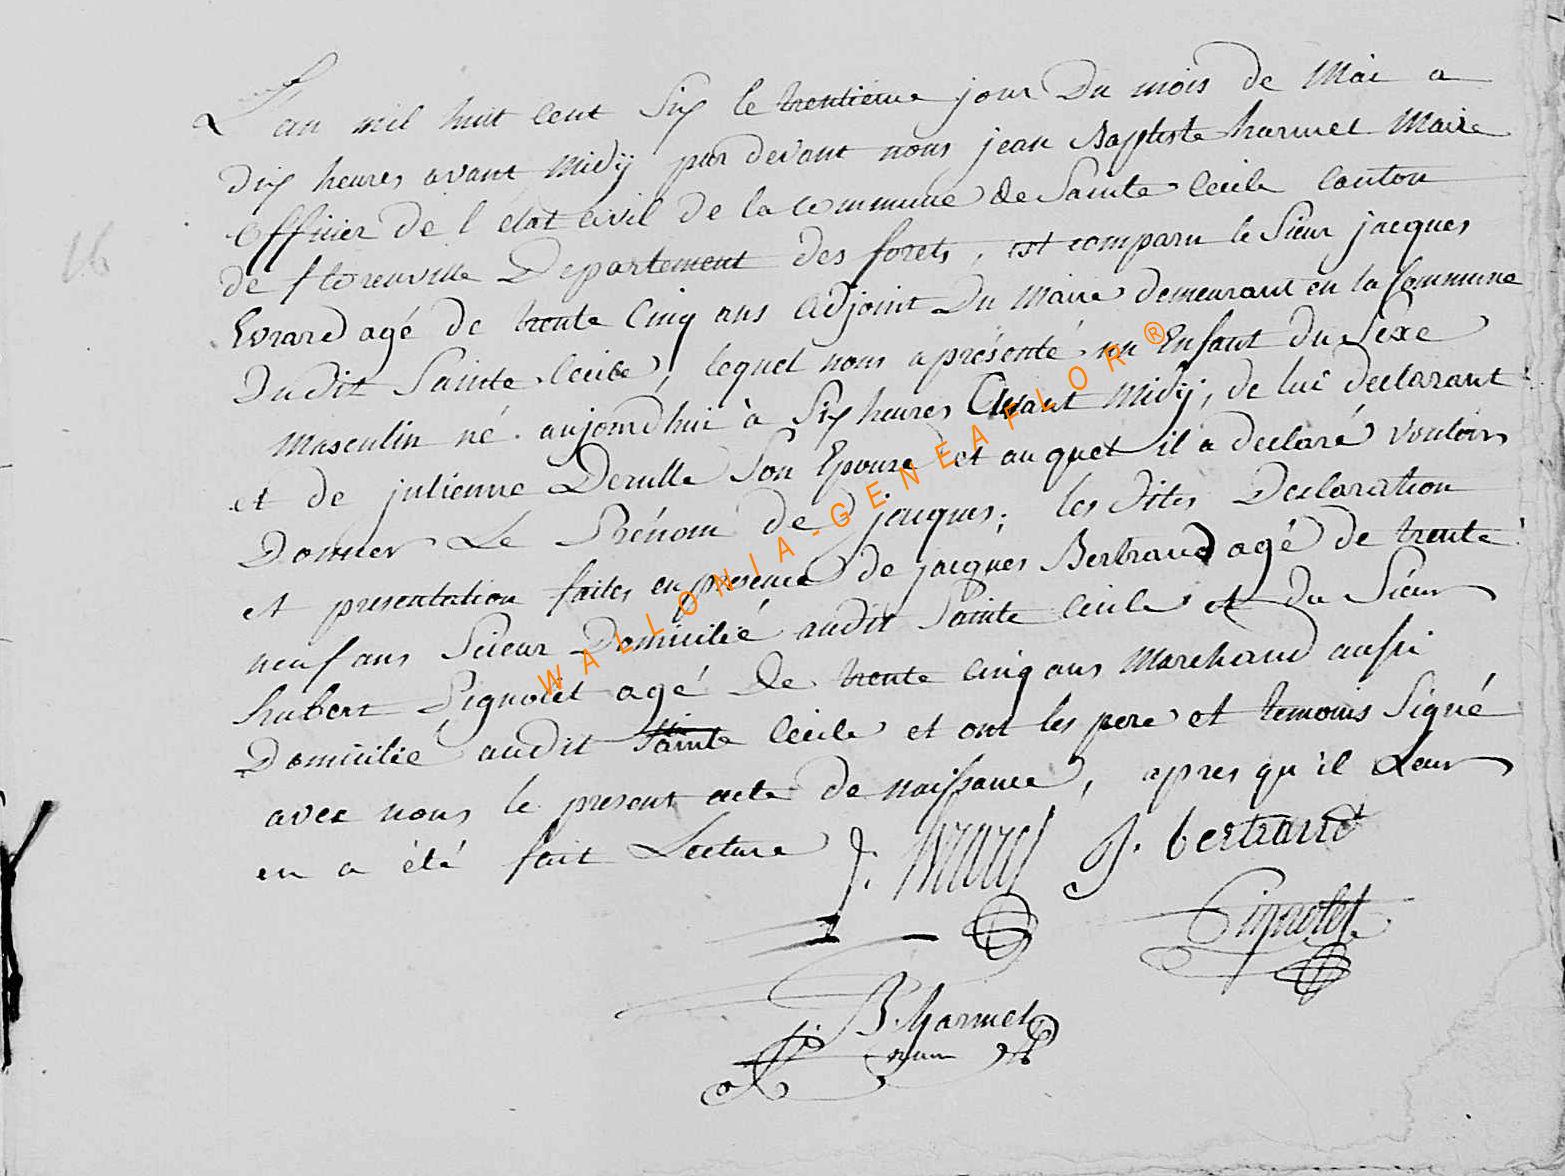 L'an mil huit cent six le trentieme jour Du mois de Mai a
dix heures avant Midÿ par devant nous jean Baptiste harmel Maire
Officier de l etat civil de la commune de Sainte Cecile Canton
de florenville Departement des forets, est comparu le Sieur jacques
Evrard agé de trente Cinq ans adjoint Du Maire demeurant en la Commune
Dudit Sainte Cecile, lequel nous a présenté un Enfant du Sexe
Masculin né aujourdhui à Six heures Avant Midÿ, de lui declarant
et de julienne Derulle Son Epouse et auquel il a declaré vouloir
Donner Le Prénom de jacques; les dites Declaration
et presentation faites en presence de jacques Bertrand agé de trente
neuf ans Scieur Domicilié audit Sainte Cecile et du Sieur
hubert Pignolet agé de trente cinq ans Marchand aussi
Domicilié audit Sainte Cecile et ont les pere et temoins Signé
avec nous le present acte de naissance, apres qu'il Leur
en a été fait Lecture
J. Evrard J. bertrand
Pignolet
J. B. harmel
maire
16
WALLONIA-GENEAFLOR®